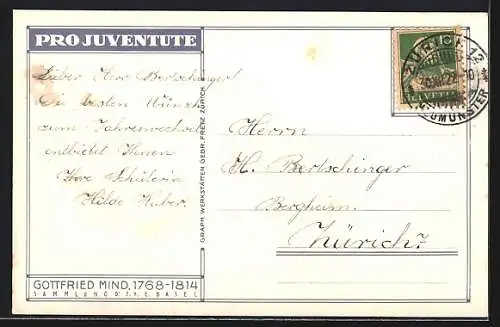 PRO JUVENTUTE
Lieber Herr Bertschinger!
Die besten Wünsche
zum Jahreswechsel
entbietet Ihnen
Ihre Schülerin
Hilde Huber.
GRAPH. WERKSTÄTTEN GEBR. FRETZ ZÜRICH
Herrn
H. Bertschinger
Bergheim.
Zürich 7
ZÜRICH 12
HELVETIA
GOTTFRIED MIND, 1768-1814
SAMMLUNG
BASEL